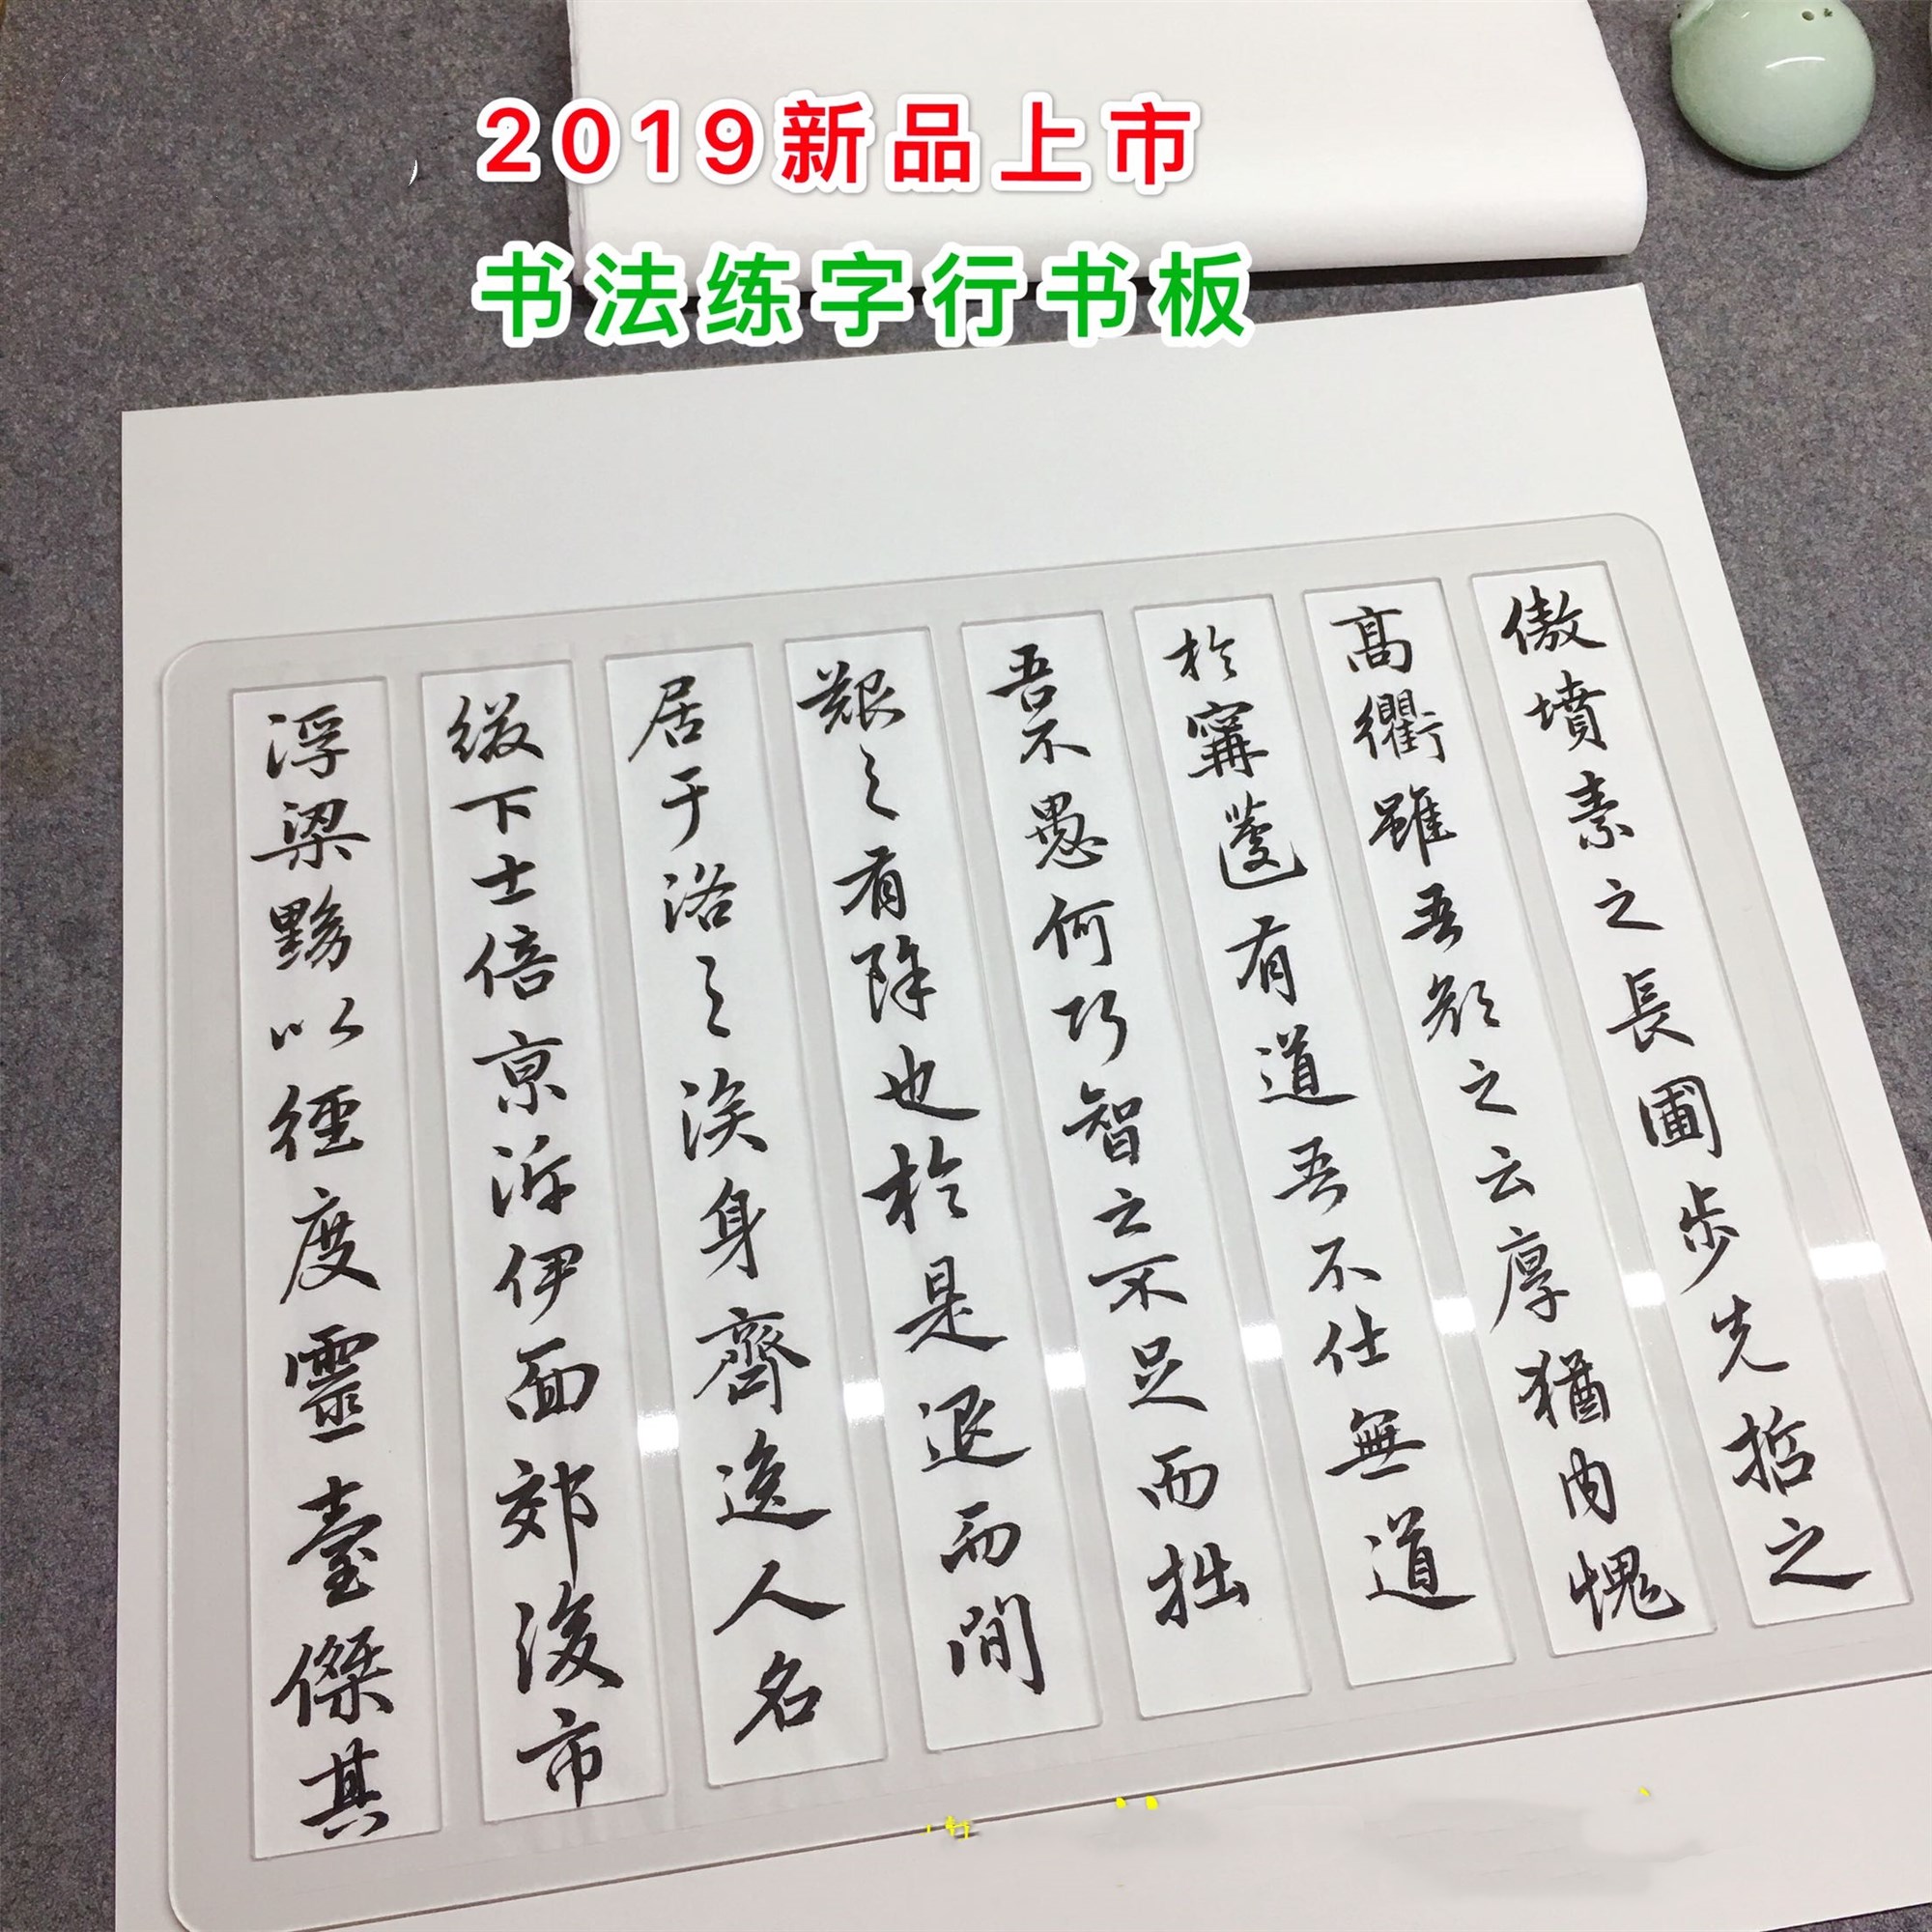 2019新品上市
书法练字行书板
傲墳素之長圃步先哲之
高衢雖吾顏之云厚猶內愧
於寗蘧有道吾不仕無道
吾不愚何巧智之不足而拙
艱之有除也於是退而閒
居于洛之涘身齊逸人名
綴下士倍京泝伊面郊後市
浮梁黝以徑度靈臺傑其